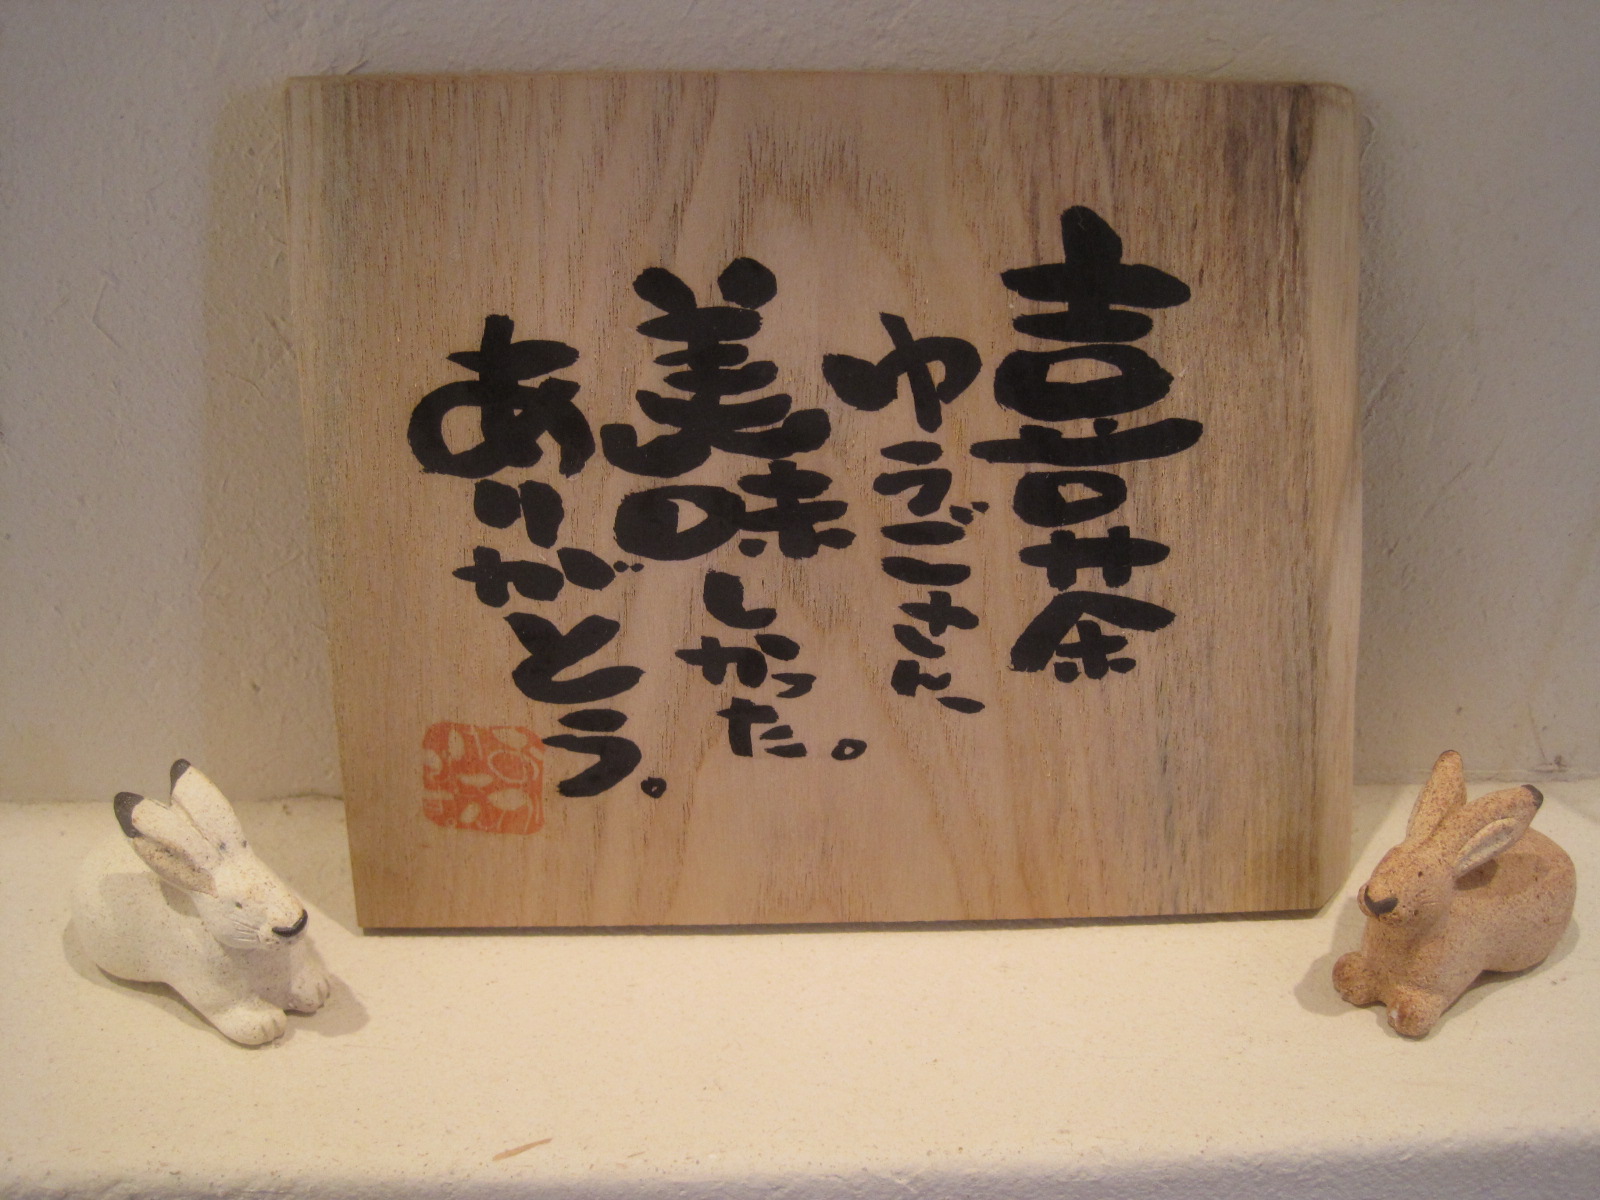 喜茶
ゆうごさん、
美味しかった。
ありがとう。